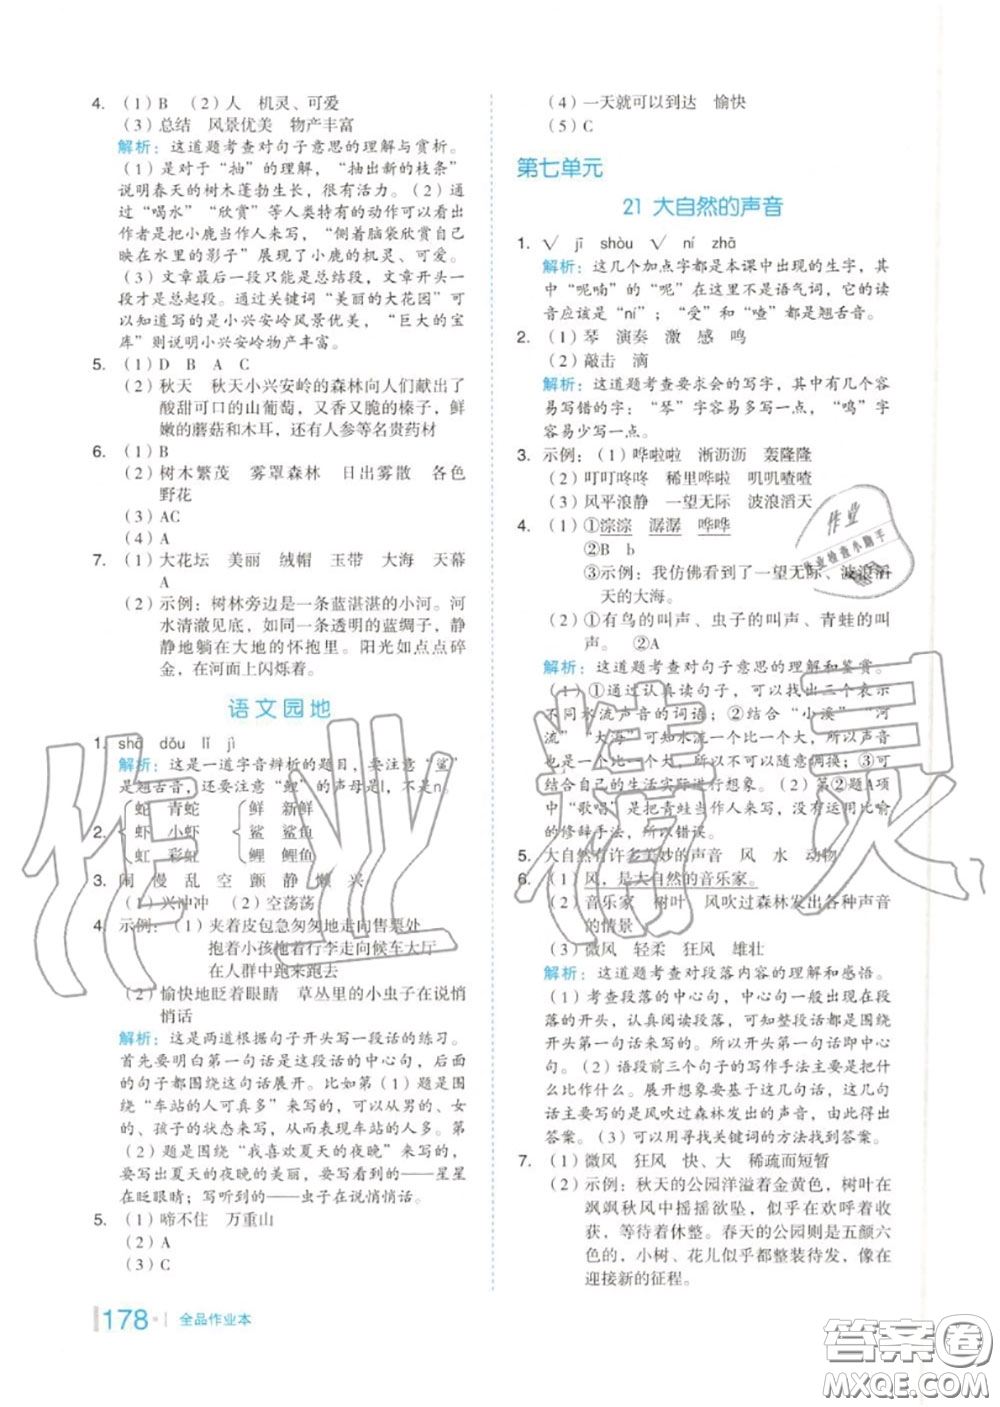 4. （1）B　（2）人　机灵、可爱
（3）总结　风景优美　物产丰富
解析：这道题考查对句子意思的理解与赏析。
（1）是对于“抽”的理解，“抽出新的枝条”
说明春天的树木蓬勃生长，很有活力。（2）通
过“喝水”“欣赏”等人类特有的动作可以看出
作者是把小鹿当作人来写，“侧着脑袋欣赏自己
映在水里的影子”展现了小鹿的机灵、可爱。
（3）文章最后一段只能是总结段，文章开头一
段才是总起段。通过关键词“美丽的大花园”可
以知道写的是小兴安岭风景优美，“巨大的宝
库”则说明小兴安岭物产丰富。
5. （1）D　B　A　C
（2）秋天　秋天小兴安岭的森林向人们献出了
酸甜可口的山葡萄，又香又脆的榛子，鲜
嫩的蘑菇和木耳，还有人参等名贵药材
6. （1）B
（2）树木繁茂　雾罩森林　日出雾散　各色
野花
（3）AC
（4）A
7. （1）大花坛　美丽　绒帽　玉带　大海　天幕
A
（2）示例：树林旁边是一条蓝湛湛的小河。河
水清澈见底，如同一条透明的蓝绸子，静
静地躺在大地的怀抱里。阳光如点点碎
金，在河面上闪烁着。
语文园地
1. shā　dǒu　lǐ　jì
解析：这是一道字音辨析的题目，要注意“鲨”
是翘舌音，还要注意“鲤”的声母是l，不是n。
蛇　青蛇　鲜　新鲜
2. 虾　小虾　鲨　鲨鱼
虹　彩虹　鲤　鲤鱼
3. 闹　慢　乱　空　颤　静　懒　兴
（1）兴冲冲　（2）空荡荡
4. 示例：（1）夹着皮包急匆匆地走向售票处
抱着小孩拖着行李走向候车大厅
在人群中跑来跑去
（2）愉快地眨着眼睛　草丛里的小虫子在说悄
悄话
解析：这是两道根据句子开头写一段话的练习。
首先要明白第一句话是这段话的中心句，后面
的句子都围绕这句话展开。比如第（1）题是围
绕“车站的人可真多”来写的，可以从男的、女
的、孩子的状态来写，从而表现车站的人多。第
（2）题是围绕“我喜欢夏天的夜晚”来写的，
要写出夏天的夜晚的美丽，要写看到的——星星
在眨眼睛；写听到的——虫子在说悄悄话。
5. （1）啼不住　万重山
（2）A
（3）C
178 全品作业本
（4）一天就可以到达　愉快
（5）C
第七单元
21 大自然的声音
1. √　jī　shòu　√　ní　zhā
解析：这几个加点字都是本课中出现的生字，其
中“呢喃”的“呢”在这里不是语气词，它的读
音应该是“ní”；“受”和“喳”都是翘舌音。
2. （1）琴　演奏　激　感　鸣
（2）敲击　滴
解析：这道题考查要求会的写字，其中有几个容
易写错的字：“琴”字容易多写一点，“鸣”字
容易少写一点。
3. 示例：（1）哗啦啦　淅沥沥　轰隆隆
（2）叮叮咚咚　稀里哗啦　叽叽喳喳
（3）风平浪静　一望无际　波浪滔天
4. （1）①淙淙　潺潺　哗哗
②B　b
③示例：我仿佛看到了一望无际、波浪滔
天的大海。
（2）①有鸟的叫声、虫子的叫声、青蛙的叫
声。　②A
解析：这道题考查对句子意思的理解和鉴赏。
（1）①通过认真读句子，可以找出三个表示
不同水流声音的词语；②结合“小溪”“河
流”“大海”可知水流一个比一个大，所以声音
也是一个比一个大，所以不可以随意调换；③可
结合自己的生活实际进行想象。（2）第②题A项
中“歌唱”是把青蛙当作人来写，没有运用比喻
的修辞手法，所以错误。
5. 大自然有许多美妙的声音　风　水　动物
6. （1）风，是大自然的音乐家。
（2）音乐家　树叶　风吹过森林发出各种声音
的情景
（3）微风　轻柔　狂风　雄壮
解析：这道题考查对段落内容的理解和感悟。
（1）考查段落的中心句，中心句一般出现在段落
的开头，认真阅读段落，可知整段话都是围绕
第一句话来写的。所以开头第一句话即中心
句。（2）语段前三个句子的写作手法主要是把什
么比作什么。展开想象要基于这几句话，这几句
话主要写的是风吹过森林发出的声音，由此得出
答案。（3）可以用寻找关键词的方法找到答案。
7. （1）微风　狂风　快、大　稀疏而短暂
（2）示例：秋天的公园洋溢着金黄色，树叶在
飒飒秋风中摇摇欲坠，似乎在欢呼着收
获，等待着休整。春天的公园则是五颜六
色的，小树、花儿似乎都整装待发，像在
迎接新的征程。
作业
作业检查小助手
作业精灵
答案圈
MXQE.COM